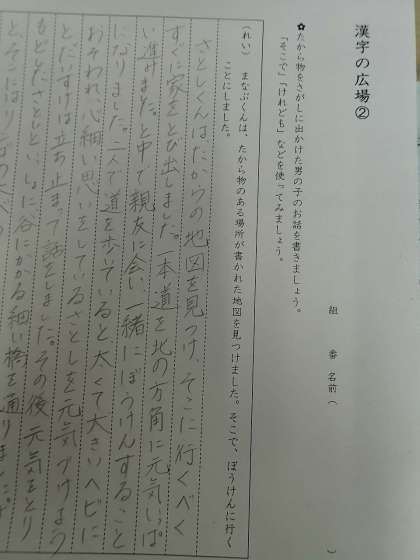 漢字の広場②
組　番　名前（　　）
✿たから物をさがしに出かけた男の子のお話を書きましょう。
「そこで」「けれども」などを使ってみましょう。
（れい）　まなぶくんは、たから物のある場所が書かれた地図を見つけました。そこで、ぼうけんに行く
ことにしました。
さとしくんはたからの地図を見つけ、そこに行くべく
すぐに家をとび出しました。一本道を北の方角に元気いっぱ
い進みました。と中で親友に会い、一緒にぼうけんすること
になりました。二人で道を歩いていると太くて大きいヘビに
おそわれ、心細い思いをしているさとしを元気づけよう
とだいすけは立ち止まって話をしました。その後元気をとり
もどしたさとしといっしょに谷にかかる細い橋を通りました。
と、そこには